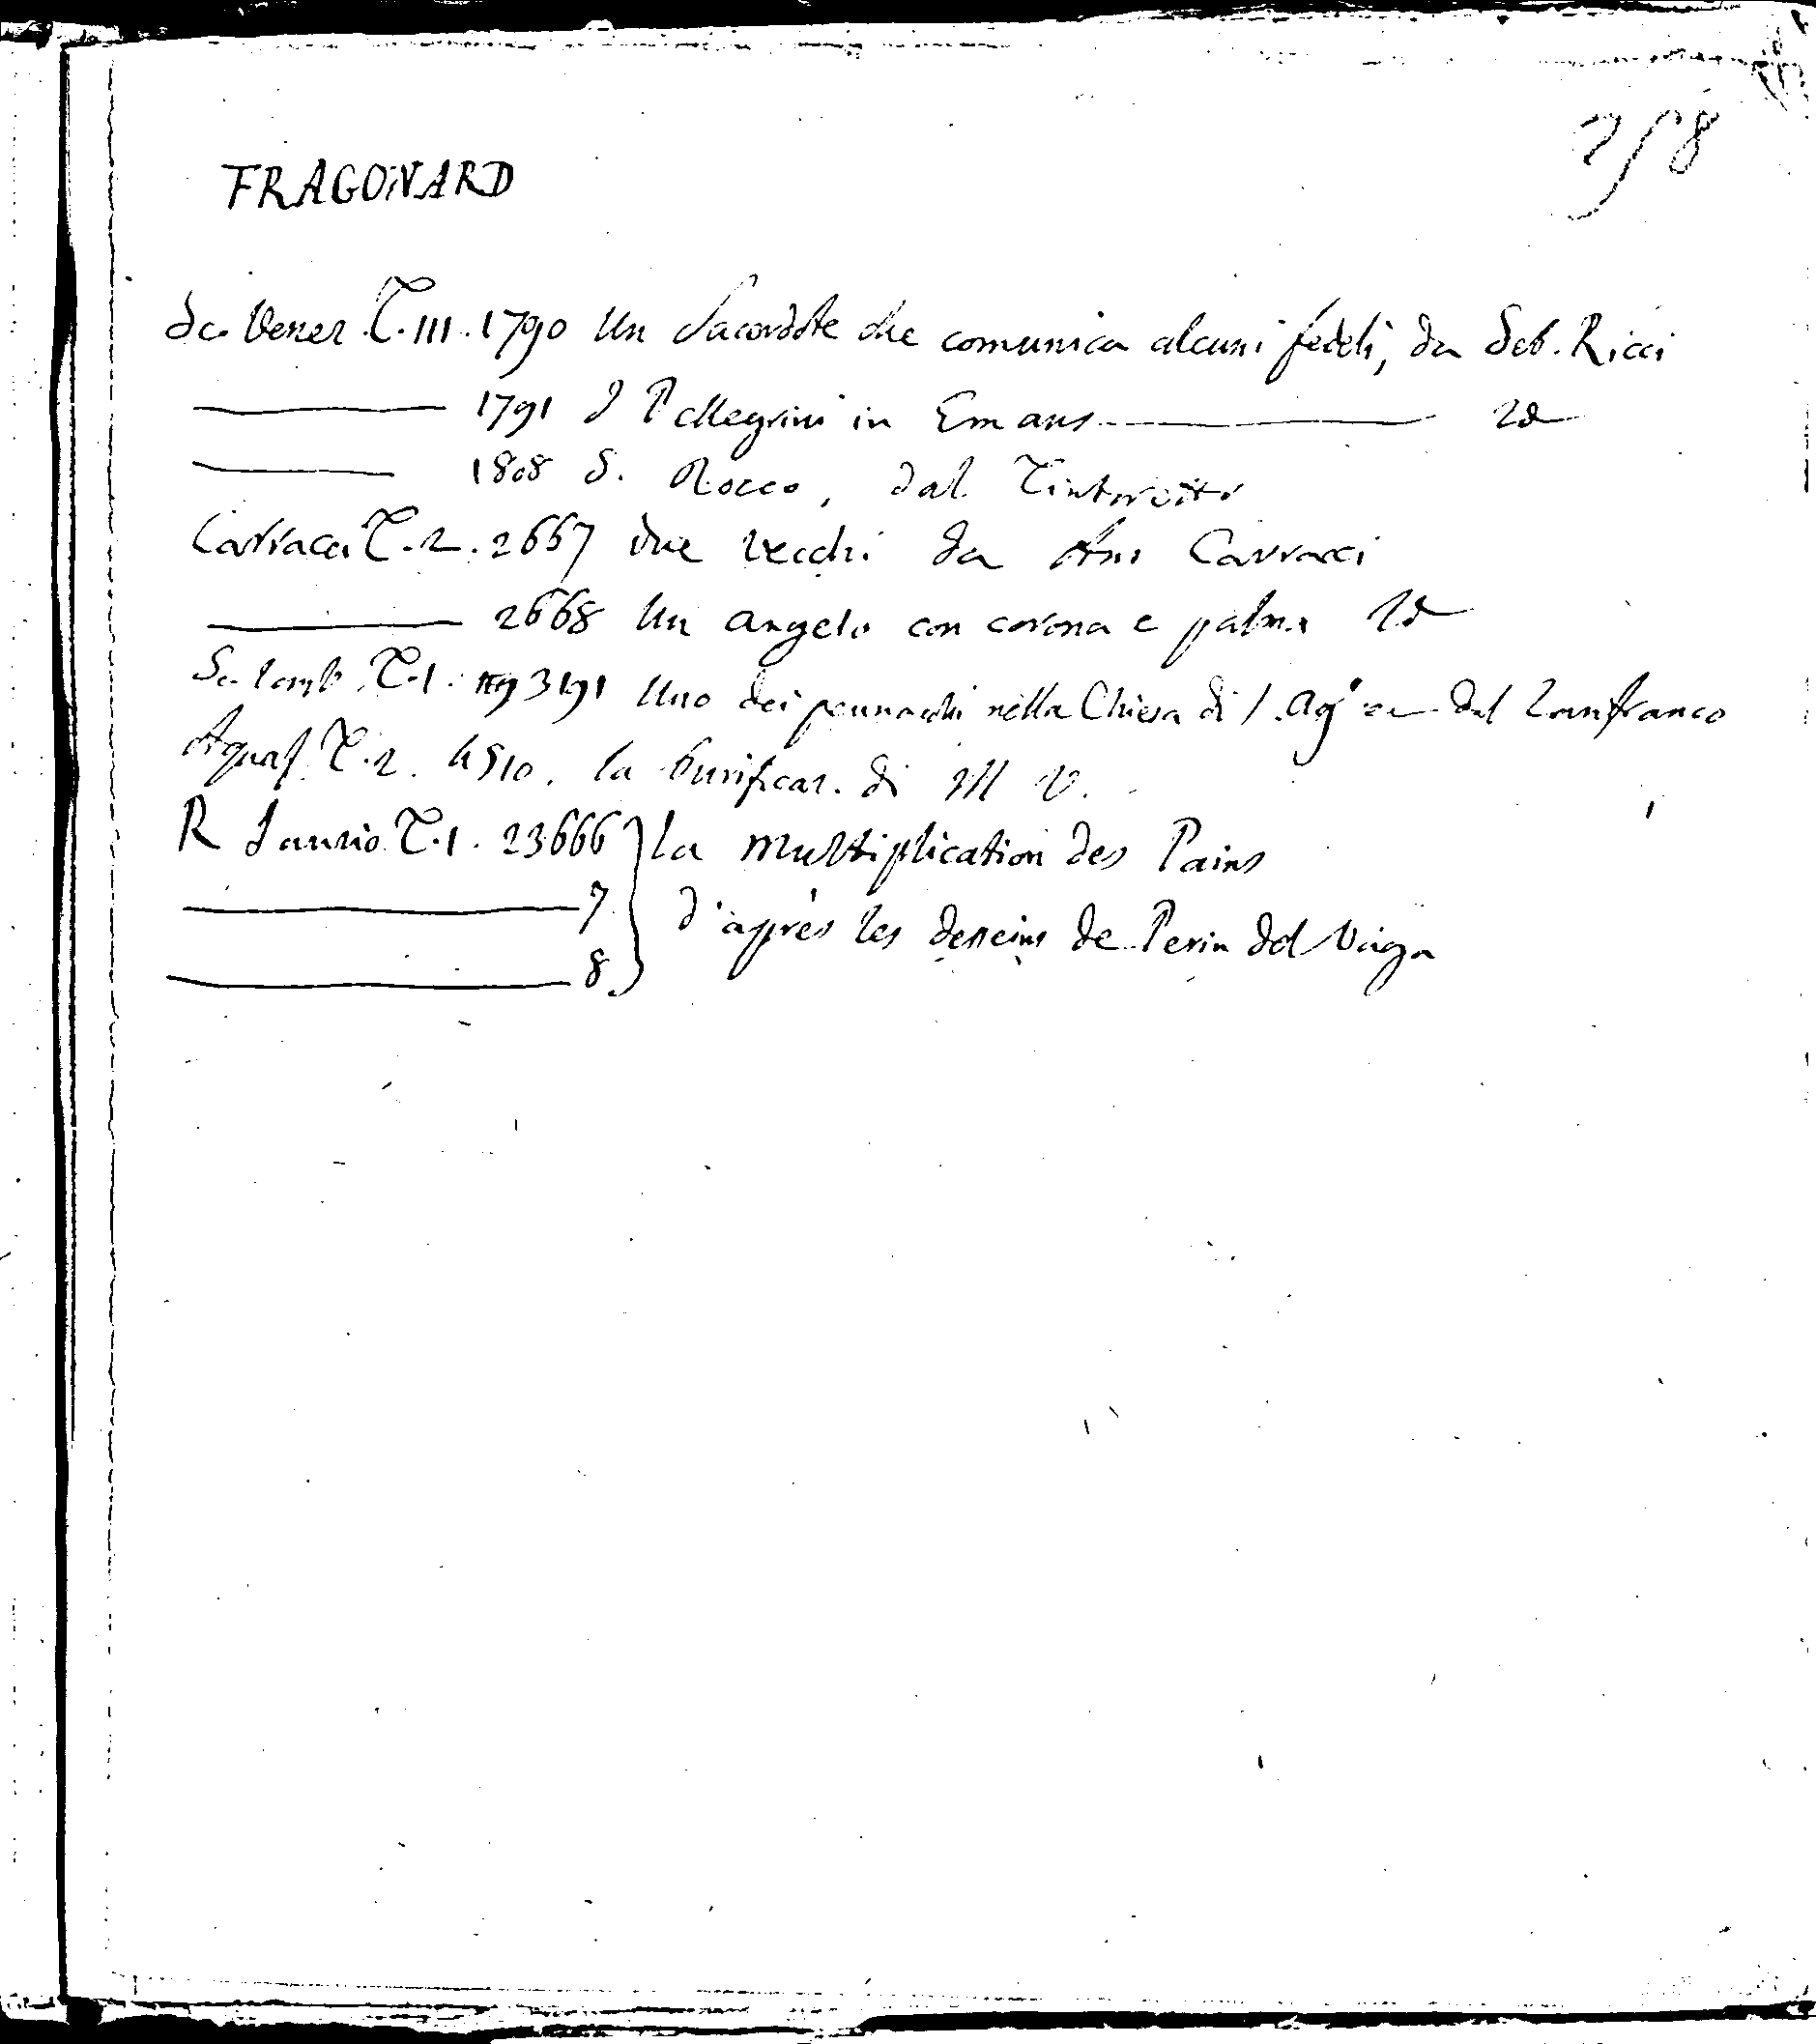 258
FRAGONARD
Sc. Venez. T. III. 1790 Un Sacerdote che comunica alcuni fedeli, da Seb. Ricci
1791 I Pellegrini in Emaus Id
1808 S. Rocco, dal Tintoretto
Carracci T. 2. 2667 due vecchi da Ann Carracci
2668 Un angelo con corona e palma Id
Sc. Lomb. T. 1. 3191 Uno dei pennacchi nella Chiesa di dal Lanfranco
Aquaf. T. 2. 4510. la Purificaz. di M V.
R T. 1. 23666 la Multiplication des Pains
7 d'après les desseins de Perin del Vaga
8